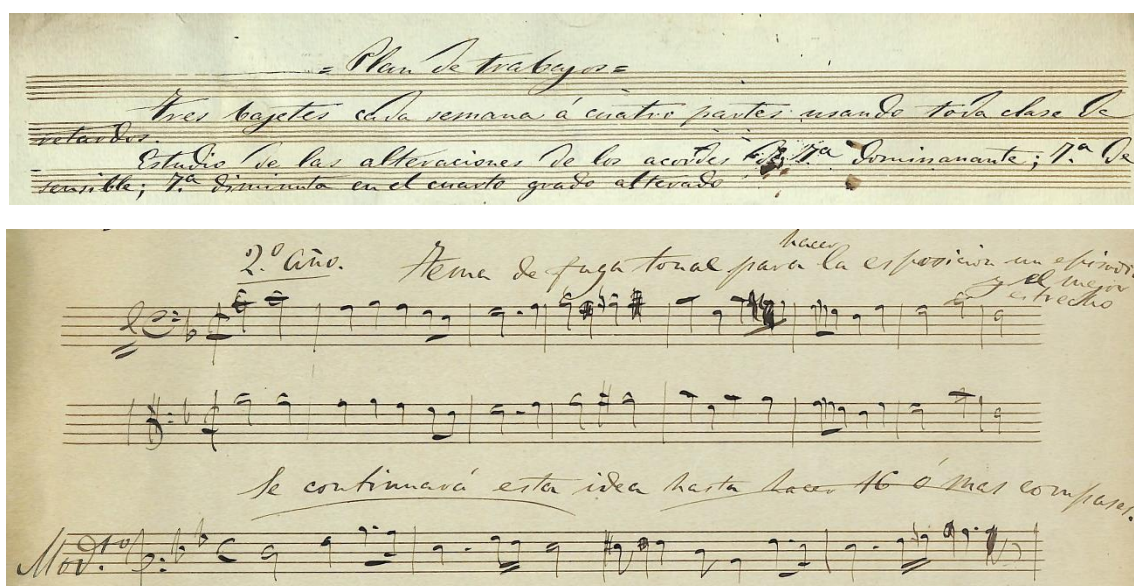 = Plan de trabajos =
Tres bajetes cada semana á cuatro partes usando toda clase de
retardos.
Estudio de las alteraciones de los acordes de 7ª dominanante; 7.ª de
sensible; 7.ª diminuta en el cuarto grado alterado
2.º Año. Tema de fuga tonal para hacer la esposicion un episodio
y el mejor
estrecho
Se continuará esta idea hasta hacer 16 ó mas compases.
Mod.to